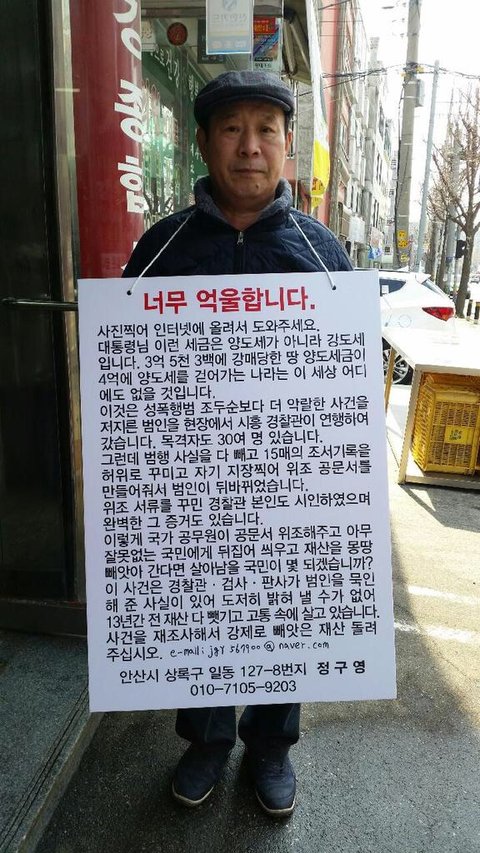 너무 억울합니다.
사진찍어 인터넷에 올려서 도와주세요.
대통령님 이런 세금은 양도세가 아니라 강도세
입니다. 3억 5천 3백에 강매당한 땅 양도세금이
4억에 양도세를 걷어가는 나라는 이 세상 어디
에도 없을 것입니다.
이것은 성폭행범 조두순보다 더 악랄한 사건을
저지른 범인을 현장에서 시흥 경찰관이 연행하여
갔습니다. 목격자도 30여 명 있습니다.
그런데 범행 사실을 다 빼고 15매의 조서기록을
허위로 꾸미고 자기 지장찍어 위조 공문서를
만들어줘서 범인이 뒤바뀌었습니다.
위조 서류를 꾸민 경찰관 본인도 시인하였으며
완벽한 그 증거도 있습니다.
이렇게 국가 공무원이 공문서 위조해주고 아무
잘못없는 국민에게 뒤집어 씌우고 재산을 몽땅
빼앗아 간다면 살아남을 국민이 몇 되겠습니까?
이 사건은 경찰관·검사·판사가 범인을 묵인
해 준 사실이 있어 도저히 밝혀 낼 수가 없어
13년간 전 재산 다 뺏기고 고통 속에 살고 있습니다.
사건을 재조사해서 강제로 빼앗은 재산 돌려
주십시오. e-mail: jgy567900@naver.com
안산시 상록구 일동 127-8번지 정구영
010-7105-9203